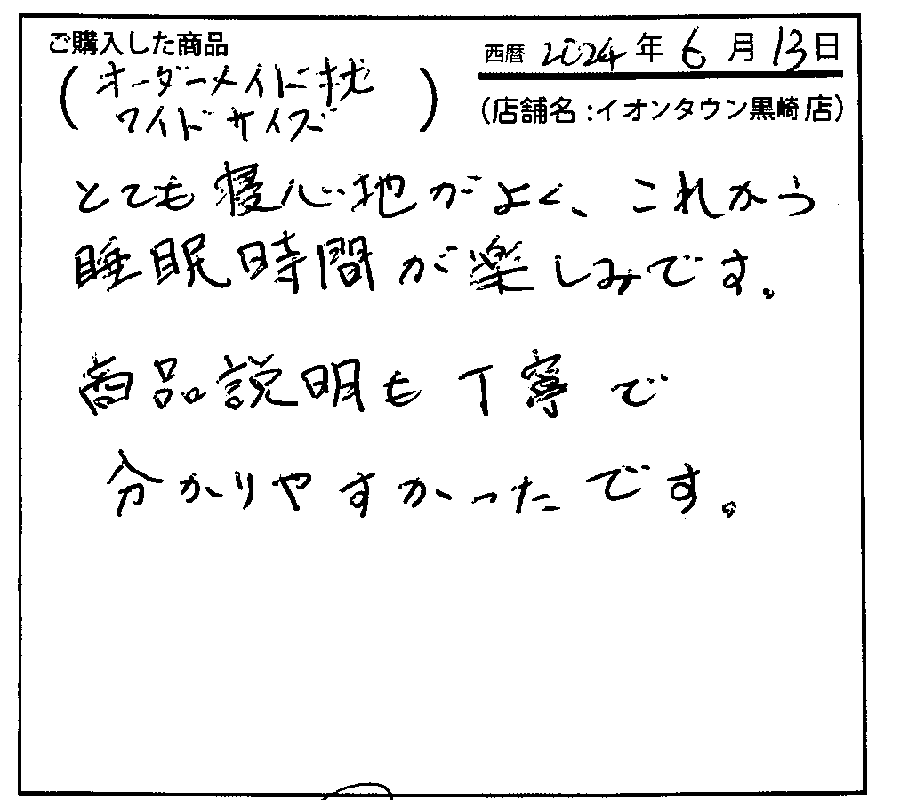 ご購入した商品
西暦 2024 年 6 月 13 日
(オーダーメイド枕
ワイドサイズ)
(店舗名:イオンタウン黒崎店)
とても寝心地がよく、これから
睡眠時間が楽しみです。
商品説明も丁寧で
分かりやすかったです。